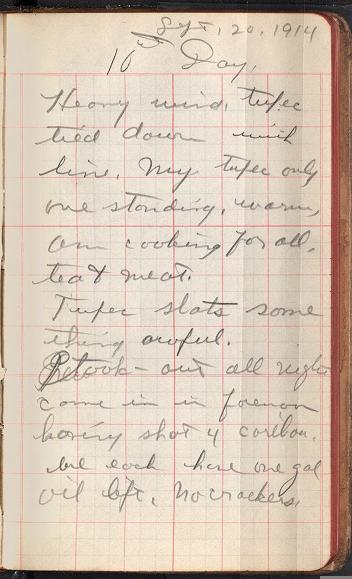 Sept. 20, 1914
16th Day.
Heavy wind, tupec
tied down with
line. My tupec only
one standing, warm,
am cooking for all.
tea & meat.
Tupec slats some
thing awful.
out all night
came in in forenon
having shot 4 caribou.
We each have one gal
oil left. No crackers.